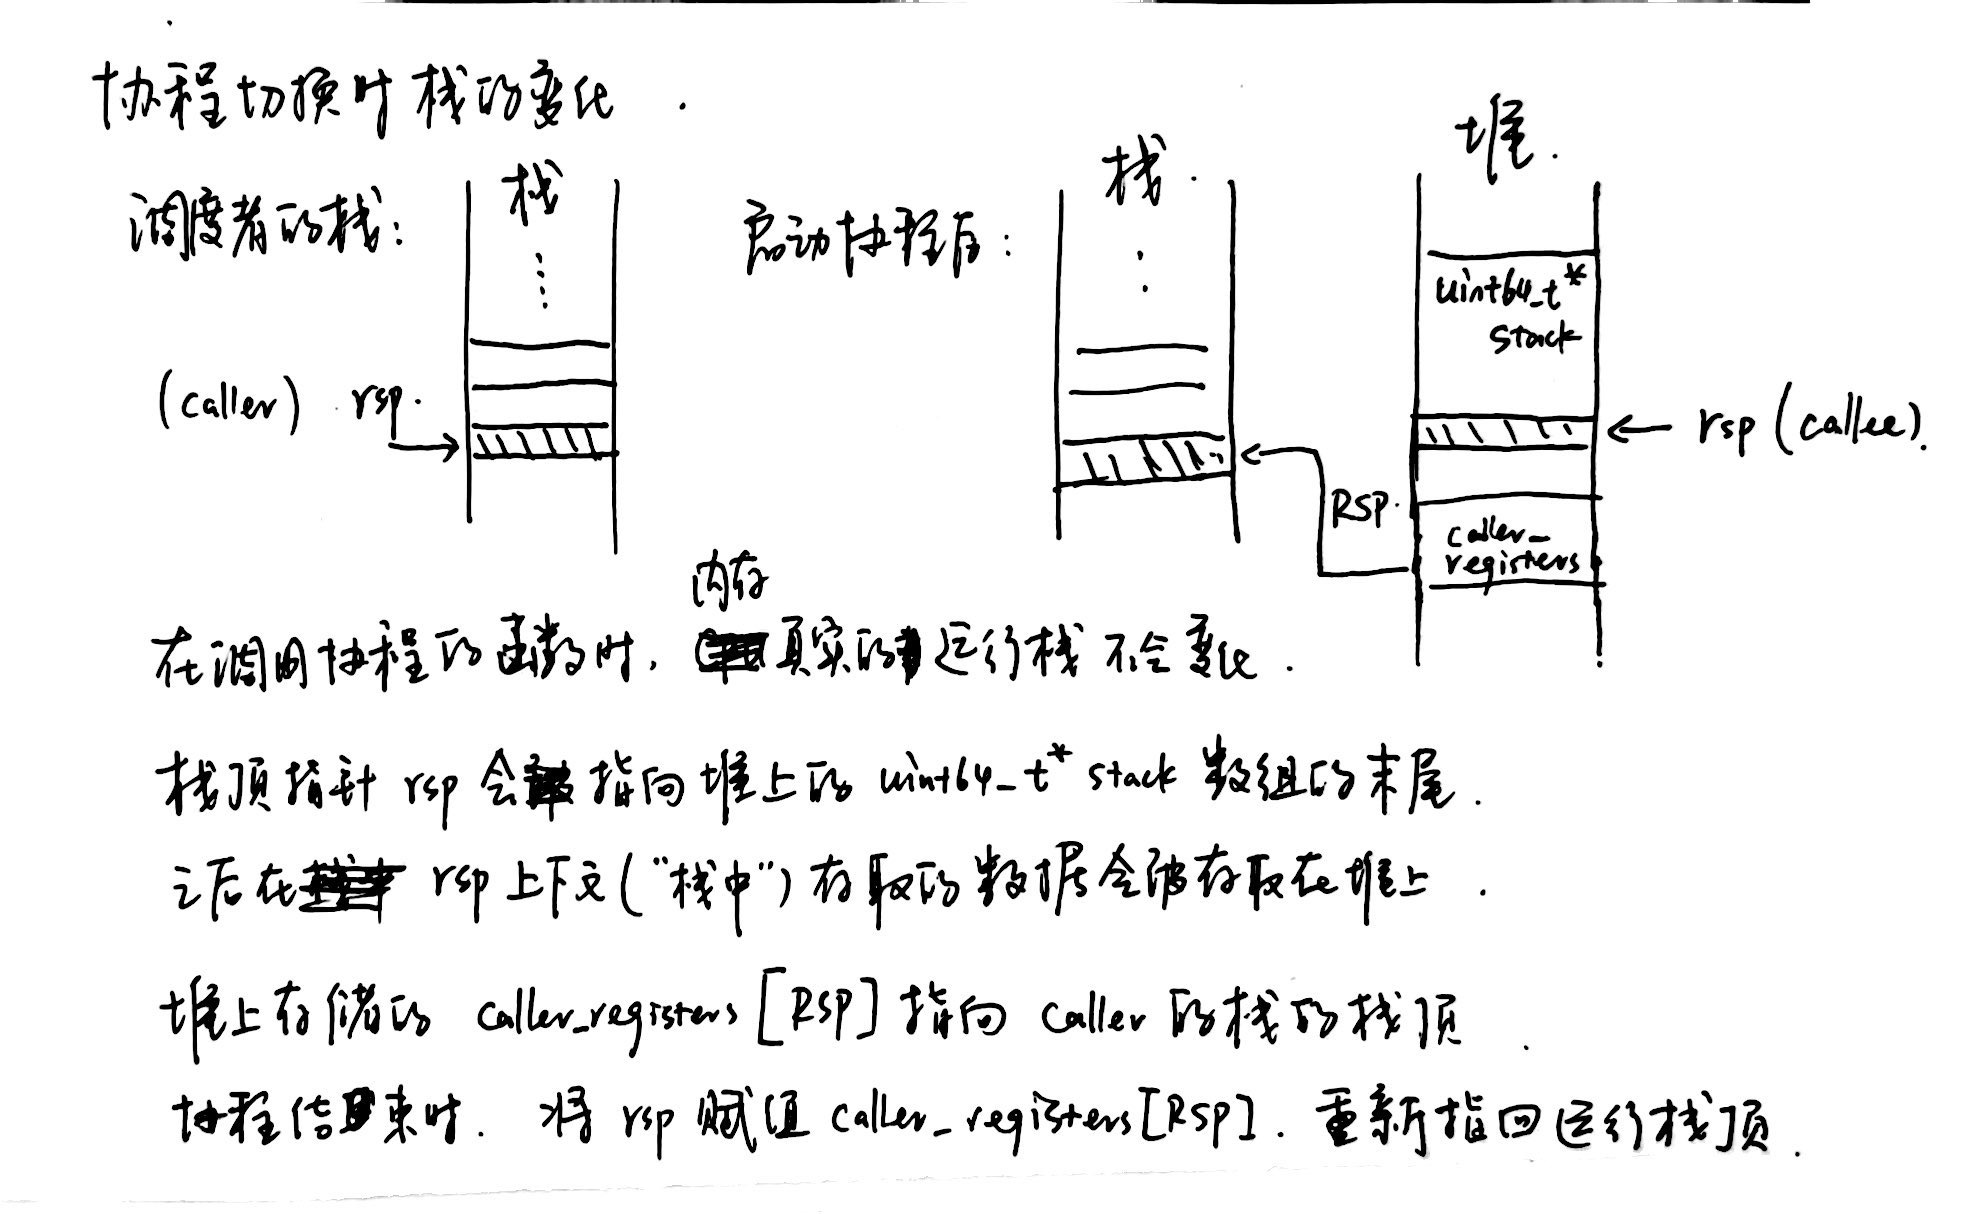 协程切换时栈的变化.
调度者的栈:
栈
(caller) rsp.
启动协程后:
栈.
堆.
uint64_t*
stack
rsp (callee).
RSP.
caller_
registers
内存
在调用协程的函数时, 真实的运行栈不会变化.
栈顶指针 rsp 会指向堆上的 uint64_t* stack 数组的末尾.
之后在 rsp 上下文("栈中")存取的数据会被存取在堆上.
堆上存储的 caller_registers[RSP]指向 caller 的栈的栈顶.
协程结束时. 将 rsp 赋值 caller_registers[RSP]. 重新指回运行栈顶.